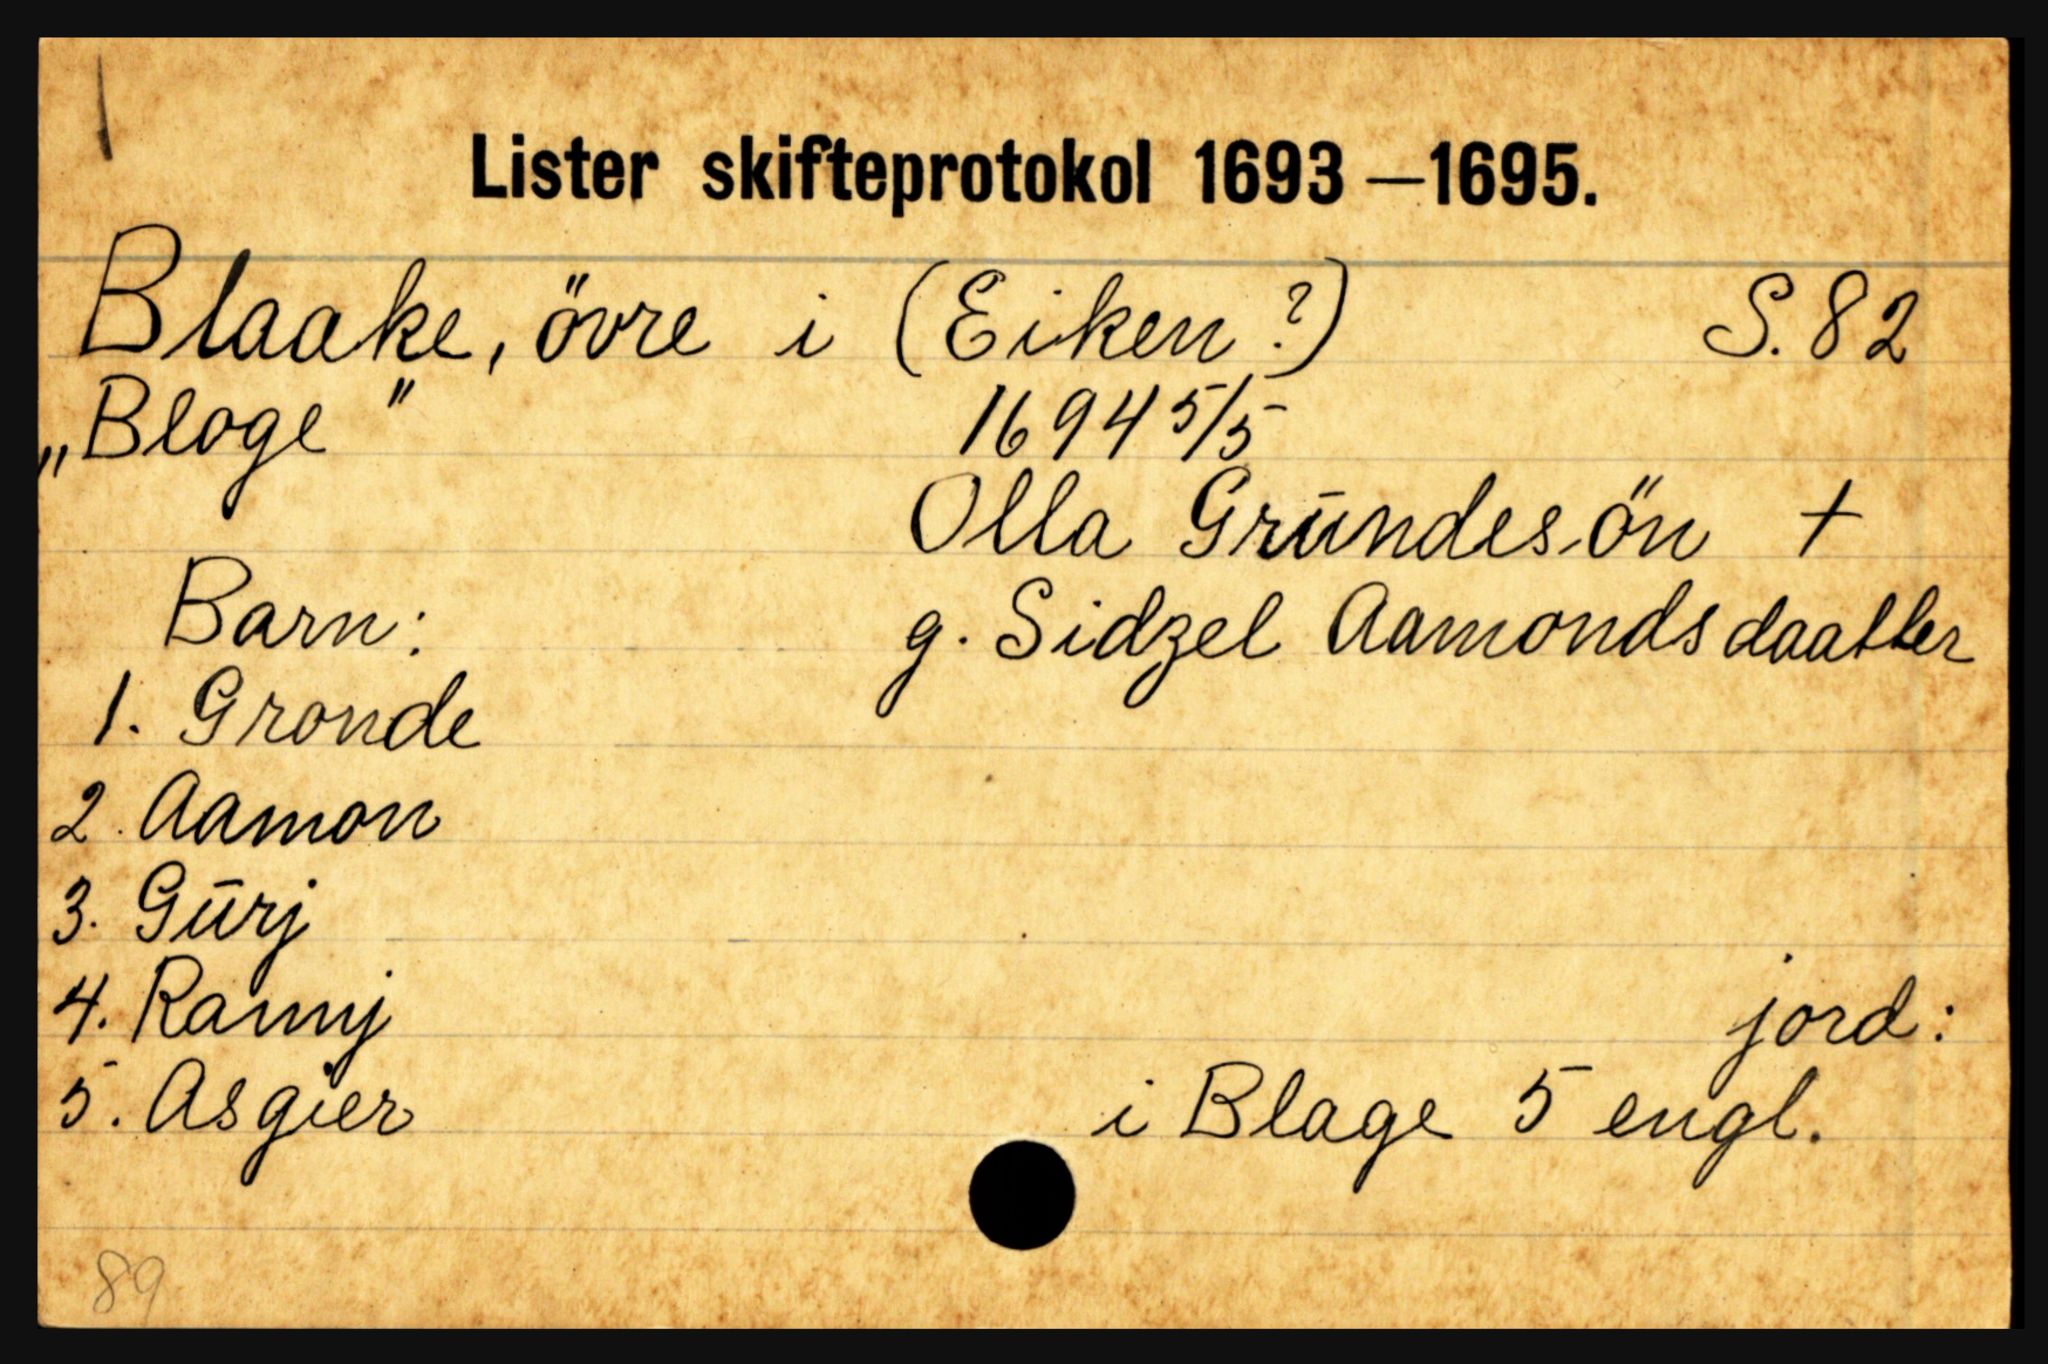 Lister skifteprotokol 1693—1695.
Blaake, övre i (Eiken?) S. 82
„Bloge" 1694 5/5
Olla Grūndesön +
Barn: g. Sidzel Aamondsdaatter
1. Gronde
2. Aamon
3. Gūrj
4. Rannj
jord:
5. Asgier i Blage 5 engl.
89